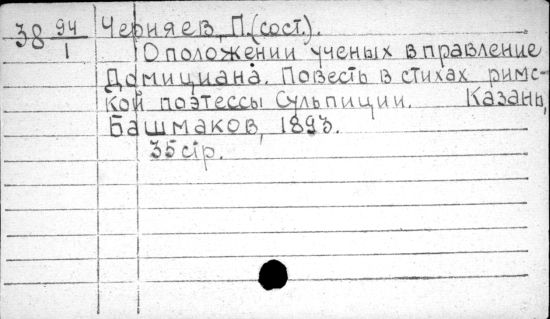 38 94/1 Черняев, П.(сост.).
О положении ученых в правление
Домициана. Повесть в стихах римс-
кой поэтессы Сульпиции. Казань,
Башмаков, 1893.
35 стр.